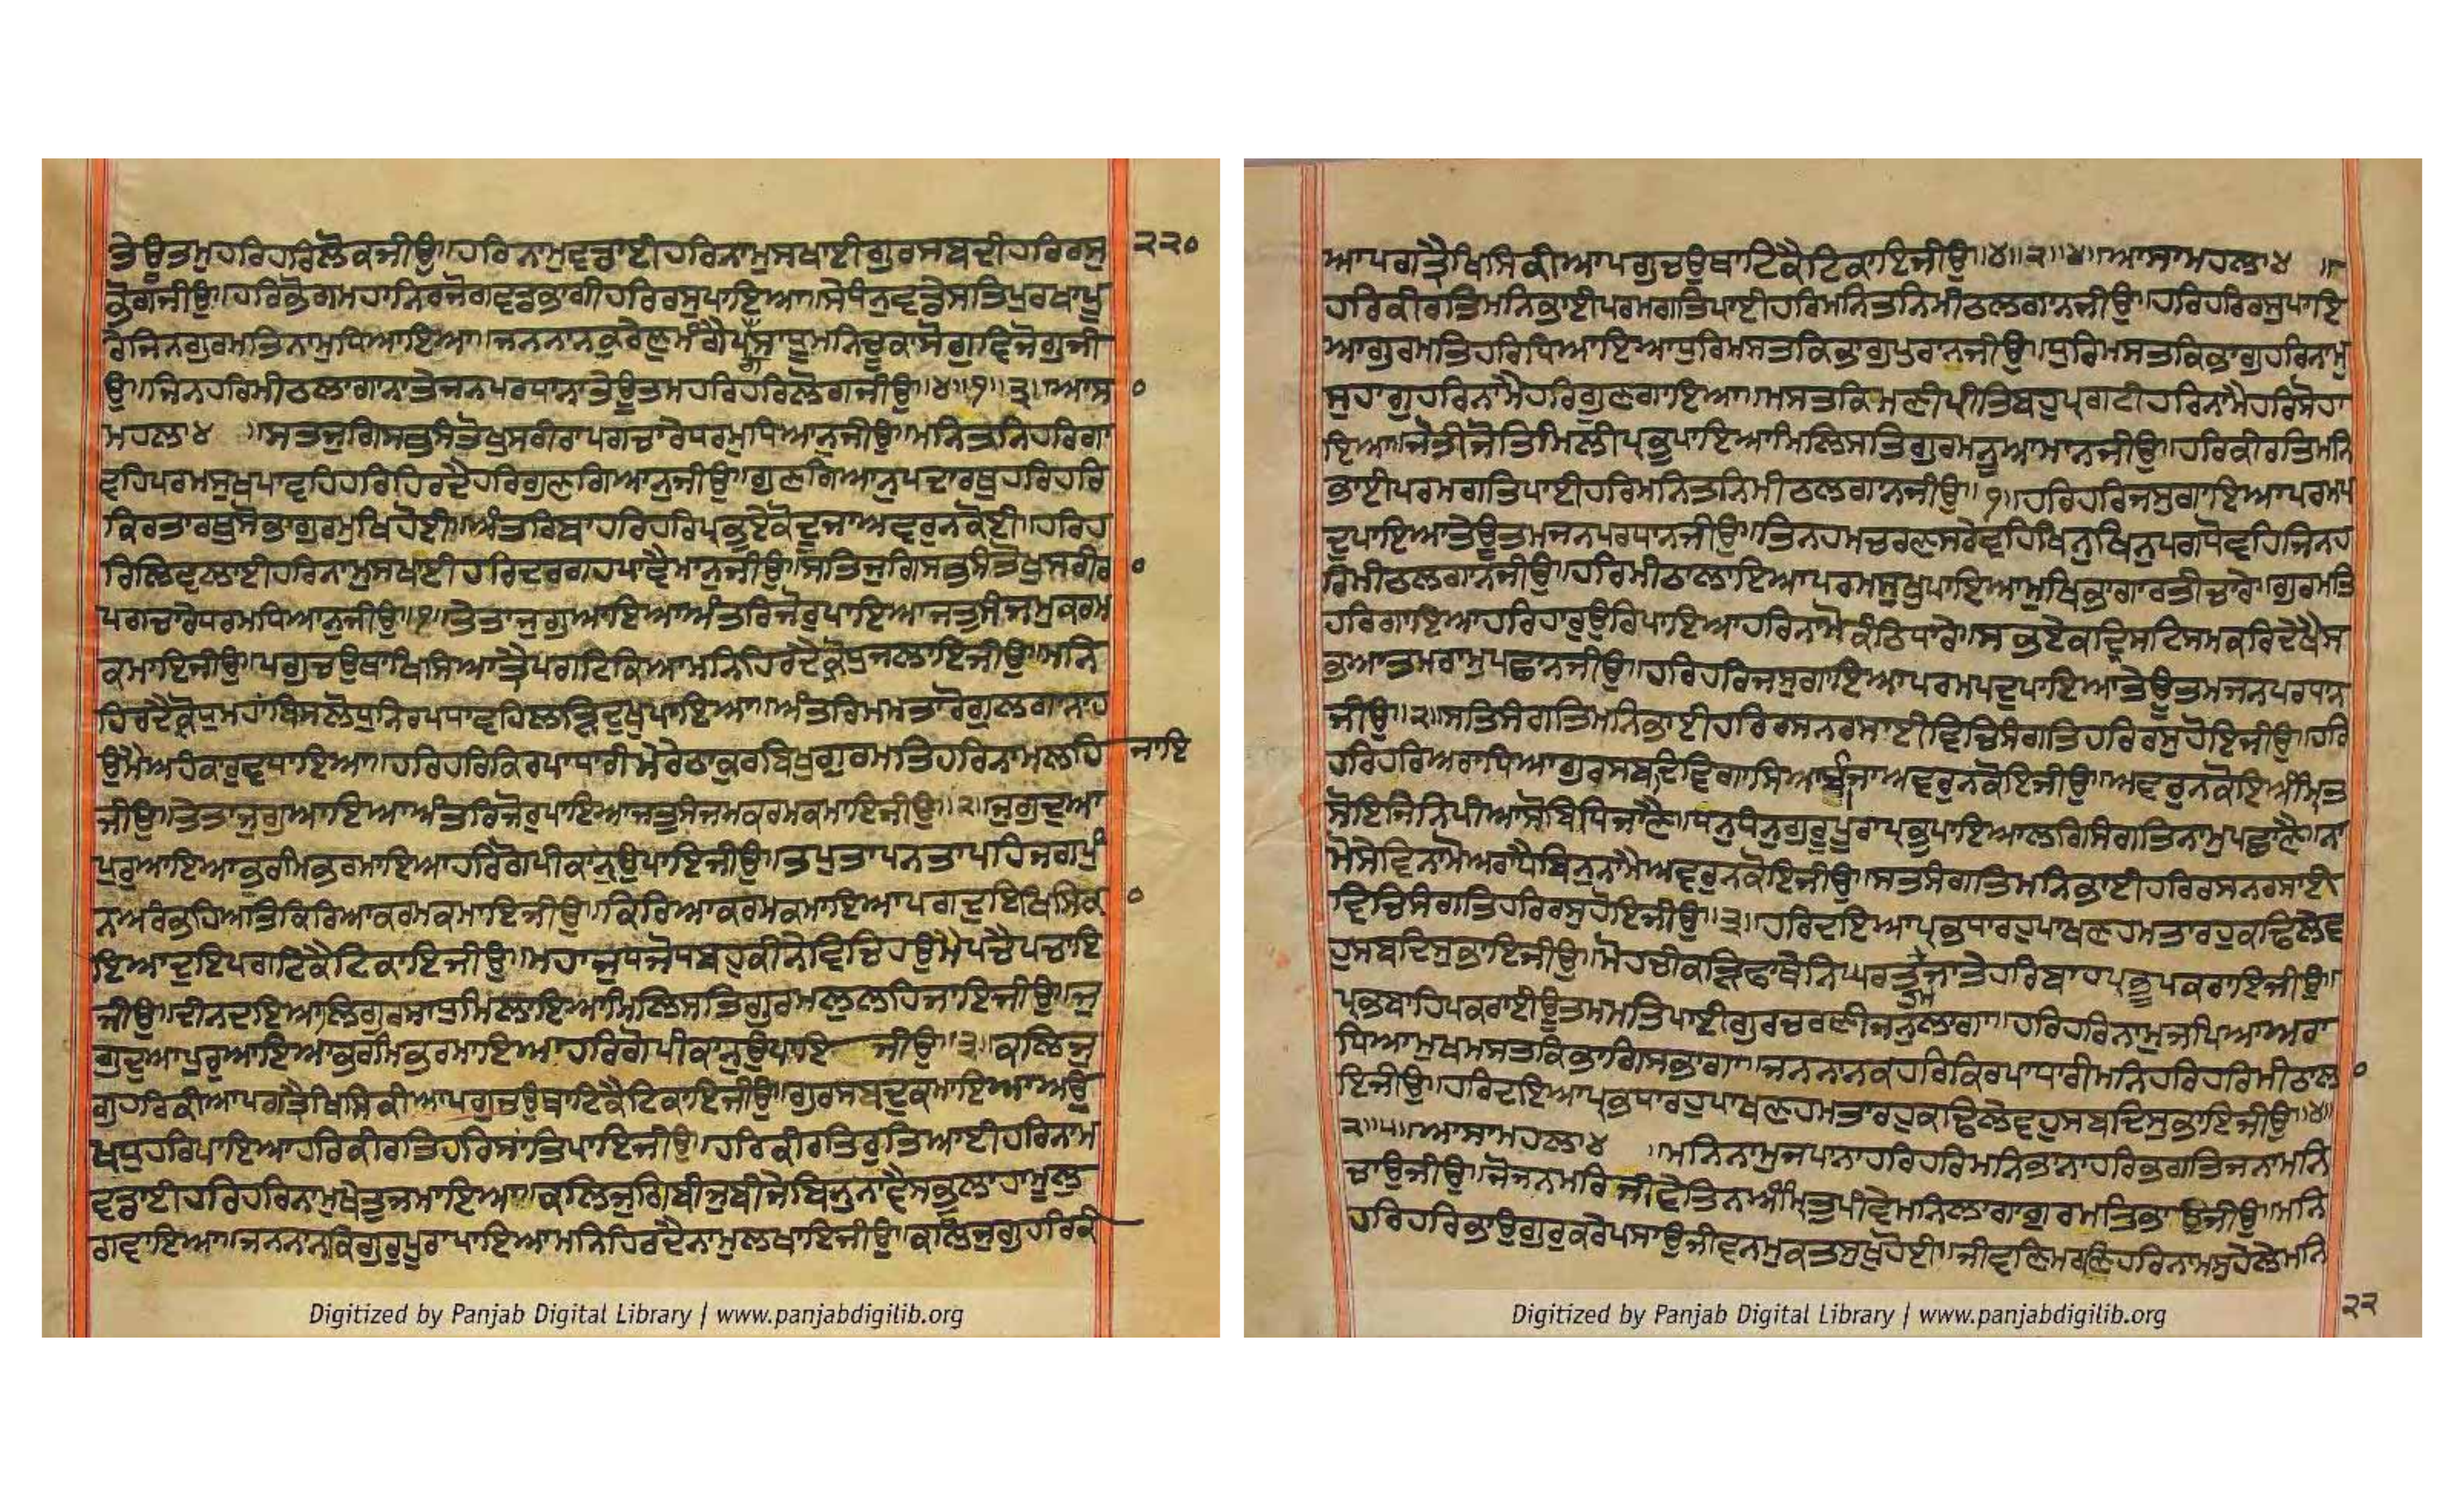 ਤੇਊਤਮਹਰਿਹਰਿਲੋਕਜੀਉ॥ਹਰਿਨਾਮੁਵਡਾਈਹਰਿਨਾਮੁਸਖਾਈਗੁਰਸਬਦੀਹਰਿਰਸੁ ੨੨੦
ਭੋਗਜੀਉ॥ਹਰਿਭੋਗਮਹਾਨਿਰਜੋਗਵਡਭਾਗੀਹਰਿਰਸੁਪਾਇਆ॥ਸੇਧੰਨੁਵਡੇਸਤਿਪੁਰਖਾਪੂ
ਰੇਜਿਨਗੁਰਮਤਿਨਾਮੁਧਿਆਇਆ॥ਜਨਨਾਨਕੁਰੇਣੁਮੰਗੈਪਗਸਾਧੂਮਨਿਚੂਕਾਸੋਗੁਵਿਜੋਗੁਜੀ
ਉ॥ਜਿਨਹਰਿਮੀਠਲਾਗਾਨਾਤੇਜਨਪਰਧਾਨਾਤੇਊਤਮਹਰਿਹਰਿਲੋਗਜੀਉ॥੪॥੧॥੩॥ਆਸਾ ੦
ਮਹਲਾ੪ ॥ਸਤਜੁਗਿਸਭੁਸੰਤੋਖੁਸਰੀਰਾਪਗਚਾਰੇਧਰਮੁਧਿਆਨੁਜੀਉ॥ਮਨਿਤਨਿਹਰਿਗਾ
ਵਹਿਪਰਮਸੁਖੁਪਾਵਹਿਹਰਿਹਿਰਦੈਹਰਿਗੁਣਗਿਆਨੁਜੀਉ॥ਗੁਣਗਿਆਨੁਪਦਾਰਥੁਹਰਿਹਰਿ
ਕਿਰਤਾਰਥੁਸੋਭਾਗੁਰਮੁਖਿਹੋਈ॥ਅੰਤਰਿਬਾਹਰਿਹਰਿਪ੍ਰਭੁਏਕੋਦੂਜਾਅਵਰੁਨਕੋਈ॥ਹਰਿਹ
ਰਿਲਿਵਲਾਈਹਰਿਨਾਮੁਸਖਾਈਹਰਿਦਰਗਹਪਾਵੈਮਾਨੁਜੀਉ॥ਸਤਿਜੁਗਿਸਭੁਸੰਤੋਖੁਸਰੀਰ ੦
ਪਗਚਾਰੇਧਰਮਧਿਆਨੁਜੀਉ॥੧॥ਤੇਤਾਜੁਗੁਆਇਆਅੰਤਰਿਜੋਰੁਪਾਇਆਜਤੁਸੰਜਮੁਕਰਮ
ਕਮਾਇਜੀਉ॥ਪਗੁਚਉਥਾਖਿਸਿਆਤ੍ਰੈਪਗਟਿਕਿਆਮਨਿਹਿਰਦੈਕ੍ਰੋਧੁਜਲਾਇਜੀਉ॥ਮਨਿ
ਹਿਰਦੈਕ੍ਰੋਧੁਮਹਾਬਿਸਲੋਧੁਨਿਰਪਧਾਵਹਿਲੜਿਦੁਖੁਪਾਇਆ॥ਅੰਤਰਿਮਮਤਾਰੋਗੁਲਗਾਨਾਹ
ਉਮੈਅਹੰਕਾਰੁਵਧਾਇਆ॥ਹਰਿਹਰਿਕਿਰਪਾਧਾਰੀਮੇਰੇਠਾਕੁਰਬਿਖੁਗੁਰਮਤਿਹਰਿਨਾਮਲਹਿ ਜਾਇ
ਜੀਉ॥ਤੇਤਾਜੁਗੁਆਇਆਅੰਤਰਿਜੋਰੁਪਾਇਆਜਤੁਸੰਜਮਕਰਮਕਮਾਇਜੀਉ॥੨॥ਜੁਗੁਦੁਆ
ਪੁਰੁਆਇਆਭਰਮਿਭਰਮਾਇਆਹਰਿਗੋਪੀਕਾਨੁਉਪਾਇਜੀਉ॥ਤਪੁਤਾਪਨਤਾਪਹਿਜਗਪੁੰ
ਨਅਰੰਭਹਿਅਤਿਕਿਰਿਆਕਰਮਕਮਾਇਜੀਉ॥ਕਿਰਿਆਕਰਮਕਮਾਇਆਪਗਦੁਇਖਿਸਕਾ ੦
ਇਆਦੁਇਪਗਟਿਕੈਟਿਕਾਇਜੀਉ॥ਮਹਾਜੁਧਜੋਧਬਹੁਕੀਨੇਵਿਚਿਹਉਮੈਪਚੈਪਚਾਇ
ਜੀਉ॥ਦੀਨਦਇਆਲਿਗੁਰਸਾਧੁਮਿਲਾਇਆਮਿਲਿਸਤਿਗੁਰਮਲੁਲਹਿਜਾਇਜੀਉ॥ਜੁ
ਗੁਦੁਆਪੁਰੁਆਇਆਭਰਮਿਭਰਮਾਇਆਹਰਿਗੋਪੀਕਾਨੁਉਪਾਇ ਜੀਉ॥੩॥ਕਲਿਜੁ
ਗੁਹਰਿਕੀਆਪਗਤ੍ਰੈਖਿਸਕੀਆਪਗੁਚਉਥਾਟਿਕੈਟਿਕਾਇਜੀਉ॥ਗੁਰਸਬਦੁਕਮਾਇਆਅਉ
ਖਧੁਹਰਿਪਾਇਆਹਰਿਕੀਰਤਿਹਰਿਸਾਂਤਿਪਾਇਜੀਉ॥ਹਰਿਕੀਰਤਿਰੁਤਿਆਈਹਰਿਨਾਮ
ਵਡਾਈਹਰਿਹਰਿਨਾਮੁਖੇਤੁਜਮਾਇਆ॥ਕਲਿਜੁਗਿਬੀਜੁਬੀਜੇਬਿਨੁਨਾਵੈਸਭੁਲਾਹਾਮੂਲੁ
ਗਵਾਇਆ॥ਜਨਨਾਨਕਿਗੁਰੁਪੂਰਾਪਾਇਆਮਨਿਹਿਰਦੈਨਾਮੁਲਖਾਇਜੀਉ॥ਕਲਿਜੁਗੁਹਰਿਕੀ
ਆਪਗਤ੍ਰੈਖਿਸਿਕੀਆਪਗੁਚਉਥਾਟਿਕੈਟਿਕਾਇਜੀਉ॥੪॥੨॥੪॥ਆਸਾਮਹਲਾ੪ ॥
ਹਰਿਕੀਰਤਿਮਨਿਭਾਈਪਰਮਗਤਿਪਾਈਹਰਿਮਨਿਤਨਿਮੀਠਲਗਾਨਜੀਉ॥ਹਰਿਹਰਿਰਸੁਪਾਇ
ਆਗੁਰਮਤਿਹਰਿਧਿਆਇਆਧੁਰਿਮਸਤਕਿਭਾਗੁਪੁਰਾਨਜੀਉ॥ਧੁਰਿਮਸਤਕਿਭਾਗੁਹਰਿਨਾਮੁ
ਸੁਹਾਗੁਹਰਿਨਾਮੈਹਰਿਗੁਣਗਾਇਆ॥ਮਸਤਕਿਮਣੀਪ੍ਰੀਤਿਬਹੁਪ੍ਰਗਟੀਹਰਿਨਾਮੈਹਰਿਸੋਹਾ
ਇਆ॥ਜੋਤੀਜੋਤਿਮਿਲੀਪ੍ਰਭੁਪਾਇਆਮਿਲਿਸਤਿਗੁਰਮਨੂਆਮਾਨਜੀਉ॥ਹਰਿਕੀਰਤਿਮਨਿ
ਭਾਈਪਰਮਗਤਿਪਾਈਹਰਿਮਨਿਤਨਿਮੀਠਲਗਾਨਜੀਉ॥੧॥ਹਰਿਹਰਿਜਸੁਗਾਇਆਪਰਮਪ
ਦੁਪਾਇਆਤੇਊਤਮਜਨਪਰਧਾਨਜੀਉ॥ਤਿਨਹਮਚਰਣਸਰੇਵਹਿਖਿਨੁਖਿਨੁਪਗਧੋਵਹਿਜਿਨਹ
ਰਿਮੀਠਲਗਾਨਜੀਉ॥ਹਰਿਮੀਠਾਲਾਇਆਪਰਮਸੁਖੁਪਾਇਆਮੁਖਿਭਾਗਾਰਤੀਚਾਰੇ॥ਗੁਰਮਤਿ
ਹਰਿਗਾਇਆਹਰਿਹਾਰੁਉਰਿਪਾਇਆਹਰਿਨਾਮੋਕੰਠਿਧਾਰੇ॥ਸਭਏਕਦ੍ਰਿਸਟਿਸਮਕਰਿਦੇਖੈਸ
ਭੁਆਤਮਰਾਮੁਪਛਾਨਜੀਉ॥ਹਰਿਹਰਿਜਸੁਗਾਇਆਪਰਮਪਦੁਪਾਇਆਤੇਊਤਮਜਨਪਰਧਾਨ
ਜੀਉ॥੨॥ਸਤਿਸੰਗਤਿਮਨਿਭਾਈਹਰਿਰਸਨਰਸਾਈਵਿਚਿਸੰਗਤਿਹਰਿਰਸੁਹੋਇਜੀਉ॥ਹਰਿ
ਹਰਿਹਰਿਅਰਾਧਿਆਗੁਰਸਬਦਿਵਿਗਾਸਿਆਬੀਜਾਅਵਰੁਨਕੋਇਜੀਉ॥ਅਵਰੁਨਕੋਇਅੰਮ੍ਰਿਤ
ਸੋਇਜਿਨਿਪੀਆਸੋਬਿਧਿਜਾਣੈ॥ਧਨੁਧੰਨੁਗੁਰੂਪੂਰਾਪ੍ਰਭੁਪਾਇਆਲਗਿਸੰਗਤਿਨਾਮੁਪਛਾਣੈ॥ਨਾ
ਮੋਸੇਵਿਨਾਮੋਅਰਾਧੈਬਿਨੁਨਾਮੈਅਵਰੁਨਕੋਇਜੀਉ॥ਸਤਸੰਗਤਿਮਨਿਭਾਈਹਰਿਰਸਨਰਸਾਈ
ਵਿਚਿਸੰਗਤਿਹਰਿਰਸੁਹੋਇਜੀਉ॥੩॥ਹਰਿਦਇਆਪ੍ਰਭਧਾਰਹੁਪਾਖਣਹਮਤਾਰਹੁਕਢਿਲੇਵ
ਹੁਸਬਦਿਸੁਭਾਇਜੀਉ॥ਮੋਹਚੀਕੜਿਫਾਥੇਨਿਘਰਤਹਮਜਾਤੇਹਰਿਬਾਹਪ੍ਰਭੂਪਕਰਾਇਜੀਉ॥
ਪ੍ਰਭਬਾਹਿਪਕਰਾਈਊਤਮਮਤਿਪਾਈਗੁਰਚਰਣੀਜਨੁਲਾਗਾ॥ਹਰਿਹਰਿਨਾਮੁਜਪਿਆਅਰਾ
ਧਿਆਮੁਖਮਸਤਕਿਭਾਗਿਸਭਾਗਾ॥ਜਨਨਾਨਕਹਰਿਕਿਰਪਾਧਾਰੀਮਨਿਹਰਿਹਰਿਮੀਠਾਲਾ ੦
ਇਜੀਉ॥ਹਰਿਦਇਆਪ੍ਰਭਧਾਰਹੁਪਾਖਣਹਮਤਾਰਹੁਕਢਿਲੇਵਹੁਸਬਦਿਸੁਭਾਇਜੀਉ॥੪॥
੩॥੫॥ਆਸਾਮਹਲਾ੪ ॥ਮਨਿਨਾਮੁਜਪਾਨਾਹਰਿਹਰਿਮਨਿਭਾਨਾਹਰਿਭਗਤਿਜਨਾਮਨਿ
ਚਾਉਜੀਉ॥ਜੋਜਨਮਰਿਜੀਵੇਤਿਨਅੰਮ੍ਰਿਤੁਪੀਵੇਮਨਿਲਾਗਾਗੁਰਮਤਿਭਾਉਜੀਉ॥ਮਨਿ
ਹਰਿਹਰਿਭਾਉਗੁਰੁਕਰੇਪਸਾਉਜੀਵਨਮੁਕਤਸੁਖੁਹੋਈ॥ਜੀਵਣਿਮਰਣਿਹਰਿਨਾਮਸੁਹੇਲੇਮਨਿ
੨੨
Digitized by Panjab Digital Library | www.panjabdigilib.org
Digitized by Panjab Digital Library | www.panjabdigilib.org